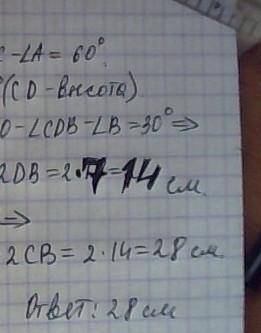 C-∠A=60°.
°(CD-высота)
0-∠CDB-∠B=30°⇒
2DB=2·7=14 см
⇒
2CB=2·14=28 см
Ответ: 28 см